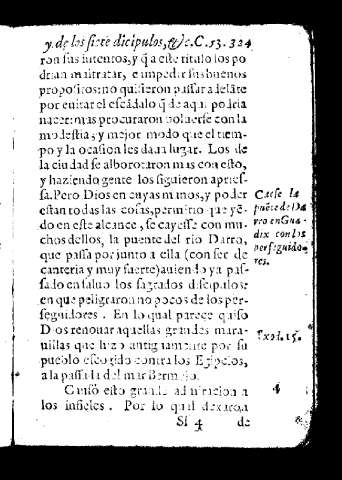 y de los siete dicipulos, &c. C. 13. 324
ron sus intentos, y q̃ a este titulo los po
drian maltratar, e impedir sus buenos
propositos: no quisieron passar adelãte
por euitar el escãdalo q̃ de aqui podria
nacer: mas procuraron boluerse con la
modestia, y mejor modo que el tiem-
po y la ocasion les daua lugar. Los de
la ciudad se alborotaron mas con esto,
y haziendo gente los siguieron apries-
sa. Pero Dios en cuyas manos, y poder
estan todas las cosas, permitio que yẽ-
do en este alcance, se cayesse con mu-
chos dellos, la puente del rio Darro,
que passa por junto a ella (con ser de
canteria y muy fuerte) auiendo ya pas-
sado en saluo los sagrados discipulos:
en que peligraron no pocos de los per-
seguidores. En lo qual parece quiso
Dios renouar aquellas grandes mara-
uillas que hizo antiguamente por su
pueblo escogido contra los Egipcios,
a la passada del mar Bermejo.
Causò esto grande admiracion a
los infieles. Por lo qual dexaron
Sf 4 de
Caese la
puẽte de Da
rro en Gua-
dix con los
perseguido-
res.
Exod. 15.
4